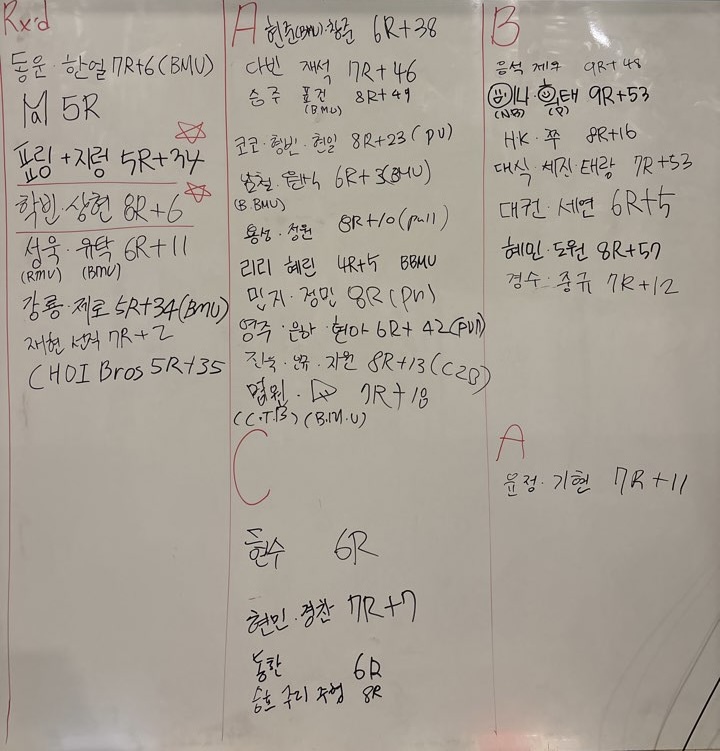 Rx'd
동운·한얼 7R+6(BMU)
5R
표링+지렁 5R+34
학빈·상현 8R+6
성욱·유탁 6R+11
(RMU) (BMU)
강룡·제로 5R+34(BMU)
재현 선적 7R+2
CHOI Bros 5R+35
A
현준(BMU)·창준 6R+38
다빈 재석 7R+46
승주 표건 8R+49
(BMU)
코코·형빈·현일 8R+23(PU)
남철· 6R+3(BMU)
(B.BMU)
용성·정원 8R+10(pull)
리리 혜린 4R+5 BBMU
민지·정민 8R(pu)
영주·은하·현아 6R+42(pull)
진욱·민규·지원 8R+13(C2B)
법원· 7R+18
(C.T.B) (B.M.U)
C
현수 6R
현민·경찬 7R+7
동한 6R
승호 주리 주형 8R
B
음석 제우 9R+48
나·학태 9R+53
(NB) (P)
HK·쭈 8R+16
대식·세진·태랑 7R+53
대권·세연 6R+5
혜민·도원 8R+57
경수·중규 7R+12
A
윤정·기현 7R+11